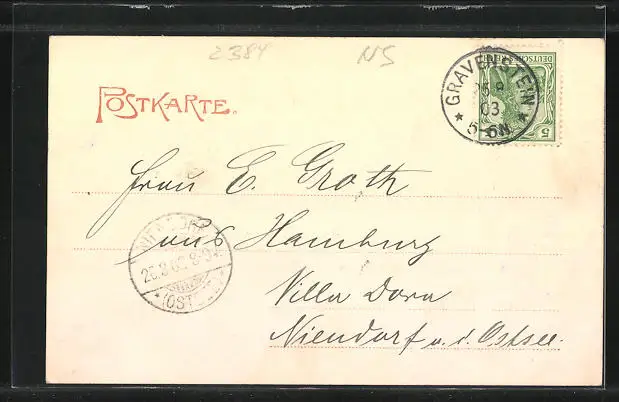 2384 NS
POSTKARTE.
* GRAVENSTEIN *
8
03.
5-6N.
DEUTSCHES REICH
5
Frau E. Groth
aus Hamburg
Villa Dora
Niendorf a. d. Ostsee.
NIENDORF
26.8.03. 8-9V.
* (OSTSEE) *